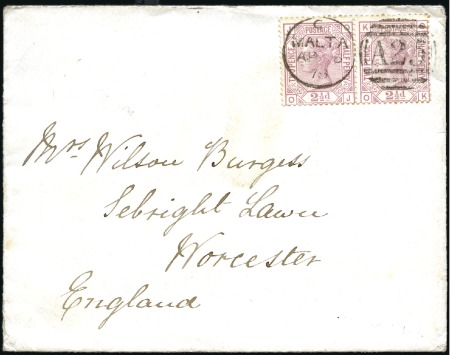 C
MALTA
AP
A25
POSTAGE
O J
2½d
O K
2½d
Mrs Wilson Burgess
Sebright Lawn
Worcester
England